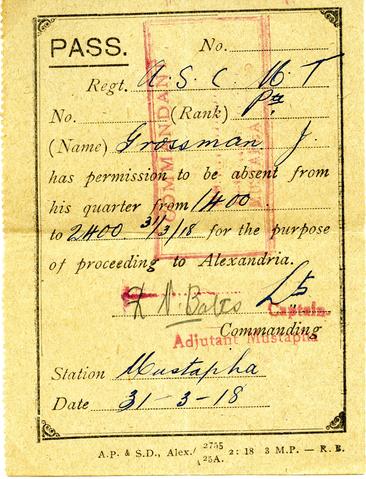 PASS. No.
Regt. A. S. C. M. T
No. (Rank) Pte
(Name) Grossman J.
has permission to be absent from
his quarter from 1400
to 2400 31/3/18 for the purpose
of proceeding to Alexandria.
Bates Lt
Captain
Commanding
Adjutant Mustapha
Station Mustapha
Date 31-3-18
A.P. & S.D., Alex./ 2755 2:18 3 M.P. — R.B.
25A.
COMMANDANT
MUSTAPHA